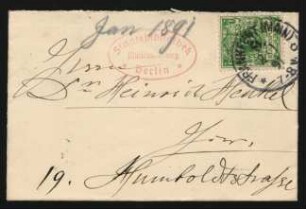 Jan 1891
Berlin
FRANKFURT (MAIN)
Herrn
Dr Heinrich Henkel
Hier.
19. Humboldtstrasse